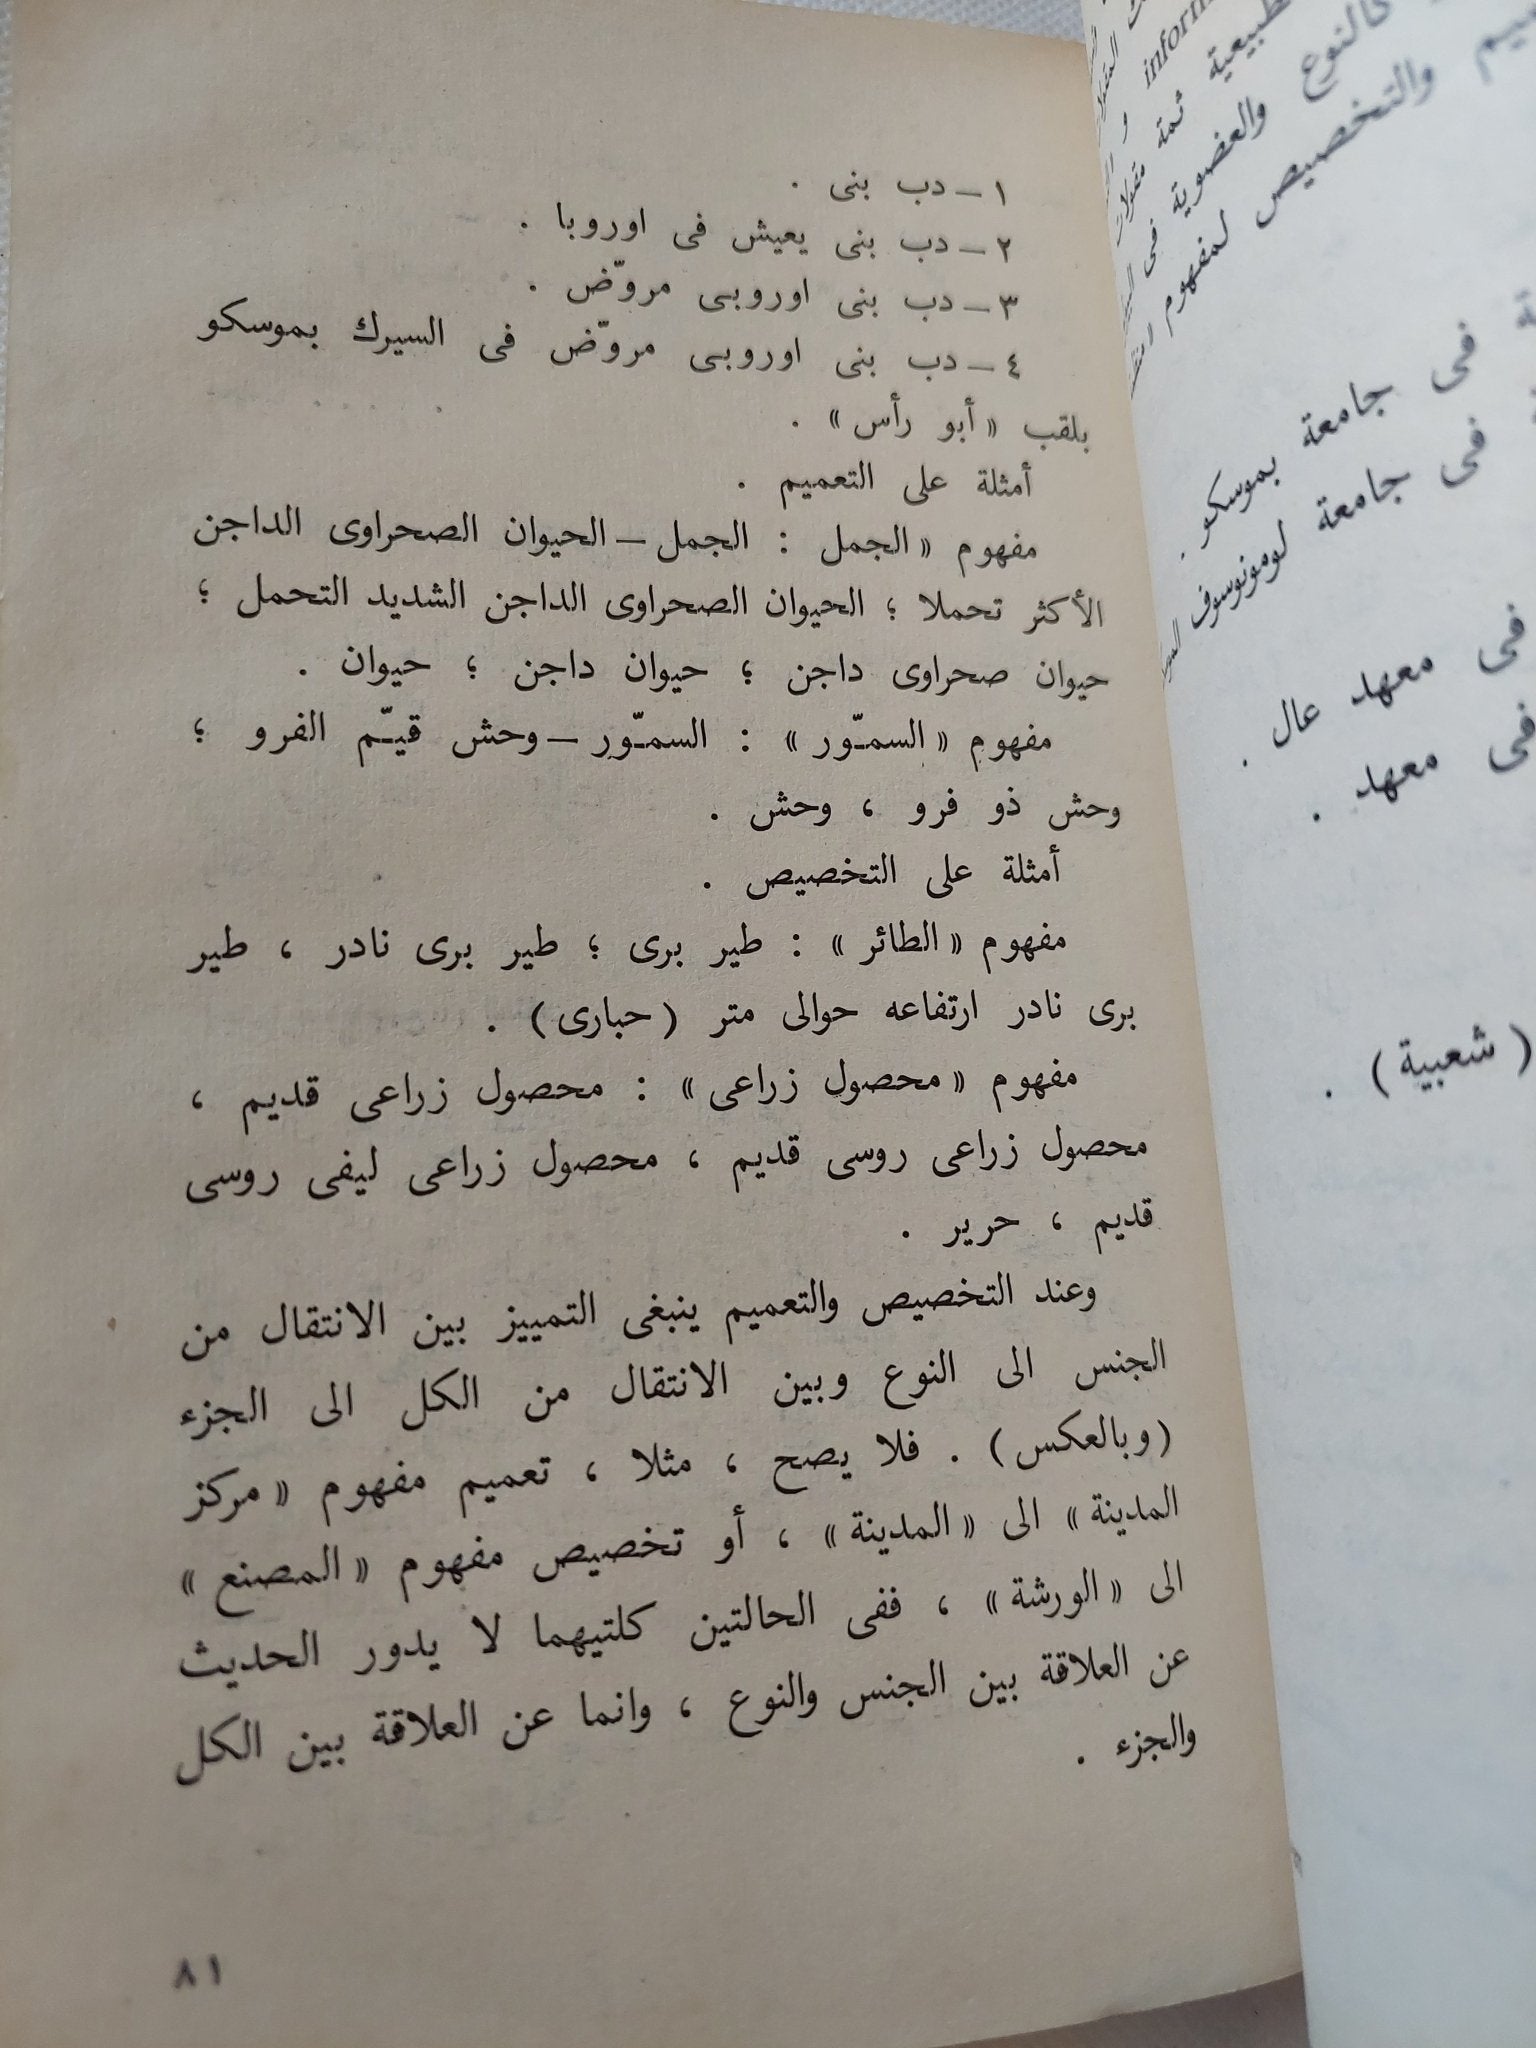 ١ – دب بنى .
٢ – دب بنى يعيش فى اوروبا .
٣ – دب بنى اوروبى مروّض .
٤ – دب بنى اوروبى مروّض فى السيرك بموسكو
بلقب « أبو رأس » .
أمثلة على التعميم .
مفهوم « الجمل : الجمل – الحيوان الصحراوى الداجن
الأكثر تحملا ؛ الحيوان الصحراوى الداجن الشديد التحمل ؛
حيوان صحراوى داجن ؛ حيوان داجن ؛ حيوان .
مفهوم « السمـّور » : السمـّور – وحش قيـّم الفرو ؛
وحش ذو فرو ، وحش .
أمثلة على التخصيص .
مفهوم « الطائر » : طير برى ؛ طير برى نادر ، طير
برى نادر ارتفاعه حوالى متر ( حبارى ) .
مفهوم « محصول زراعى » : محصول زراعى قديم ،
محصول زراعى روسى قديم ، محصول زراعى ليفى روسى
قديم ، حرير .
وعند التخصيص والتعميم ينبغى التمييز بين الانتقال من
الجنس الى النوع وبين الانتقال من الكل الى الجزء
( وبالعكس ) . فلا يصح ، مثلا ، تعميم مفهوم « مركز
المدينة » الى « المدينة » ، أو تخصيص مفهوم « المصنع »
الى « الورشة » ، ففى الحالتين كلتيهما لا يدور الحديث
عن العلاقة بين الجنس والنوع ، وانما عن العلاقة بين الكل
والجزء .
٨١
طبيعية ثمة مقولات
كالنوع والعضوية فى
والتخصيص لمفهوم
فى جامعة بموسكو .
فى جامعة لومونوسوف
فى معهد عال .
فى معهد .
( شعبية ) .